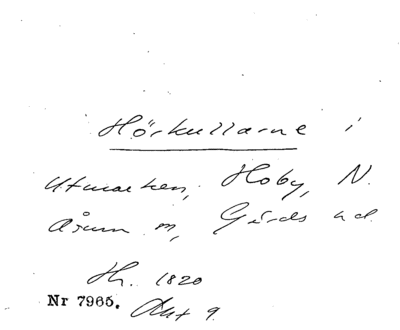 Hörkullarne i
Utmarken, Hoby, N.
Åsum m, Gärds hd.
Hh. 1820
Nr 7965. Akt 9.